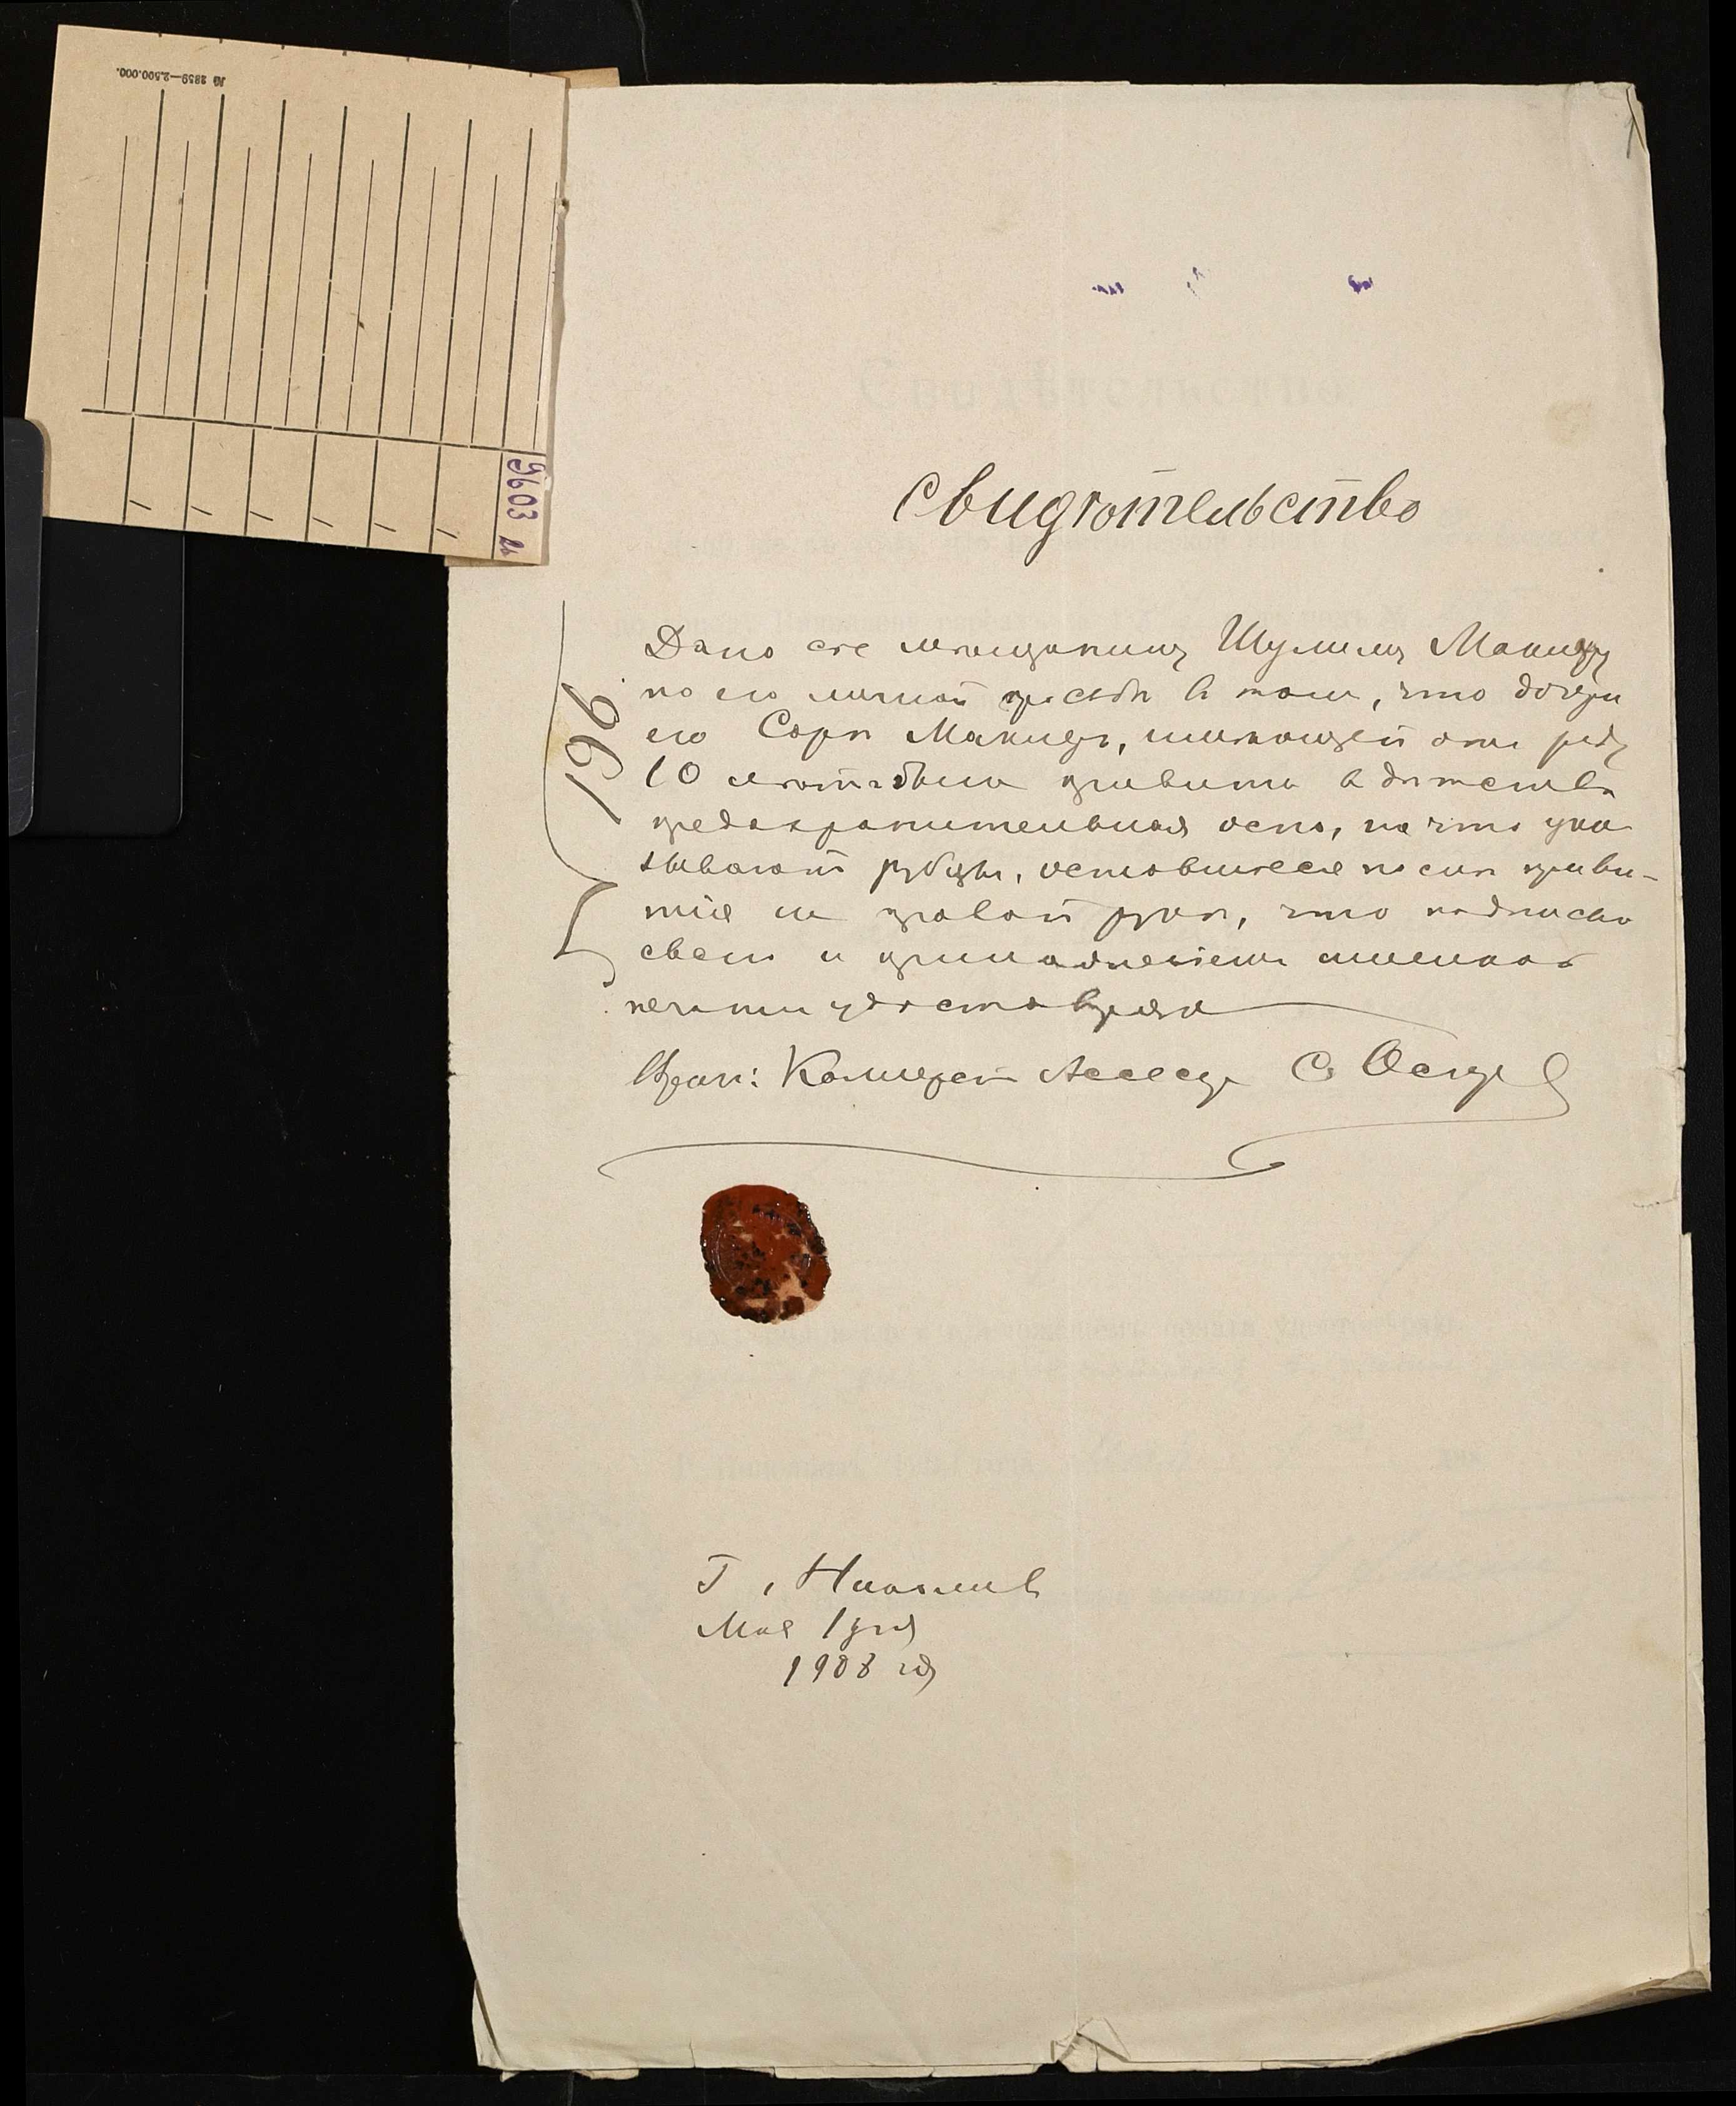 № 2859—2.500.000.
9603
Свидѣтельство
196
Дано сіе мѣщанину Шулиму Макидр
по его личной просьбѣ въ томъ, что дочери
его Сорѣ Макидръ, имѣющей отъ роду
10 лѣтъ была привита въ дѣтствѣ
предохранительная оспа, на что ука
зываютъ рубцы, оставшіеся послѣ приви-
тія на правой рукѣ, что подписью
своею и приложеніемъ именной
печати удостовѣряю
Врачъ: Коллежскій Ассесоръ С.
Г. Николаевъ
Мая 1 дня
1908 года